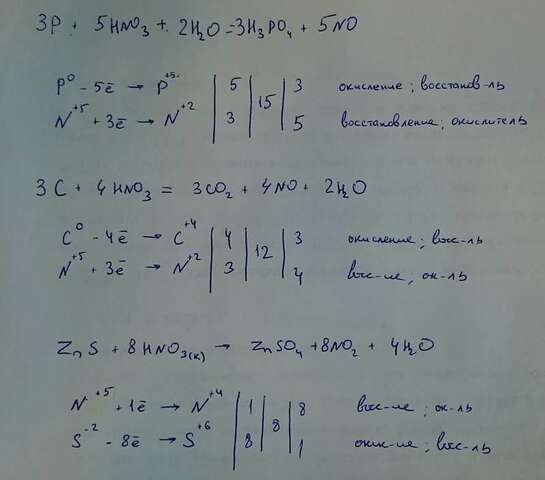 3P + 5HNO₃ + 2H₂O = 3H₃PO₄ + 5NO
P⁰ - 5ē → P⁺⁵ | 5 | 15 | 3 окисление; восстанов-ль
N⁺⁵ + 3ē → N⁺² | 3 | | 5 восстановление; окислитель
3C + 4HNO₃ = 3CO₂ + 4NO + 2H₂O
C⁰ - 4ē → C⁺⁴ | 4 | 12 | 3 окисление; восс-ль
N⁺⁵ + 3ē → N⁺² | 3 | | 4 восс-ие, ок-ль
ZnS + 8HNO₃(к) → ZnSO₄ + 8NO₂ + 4H₂O
N⁺⁵ + 1ē → N⁺⁴ | 1 | 8 | 8 восс-ие; ок-ль
S⁻² - 8ē → S⁺⁶ | 8 | | 1 окис-ие; восс-ль